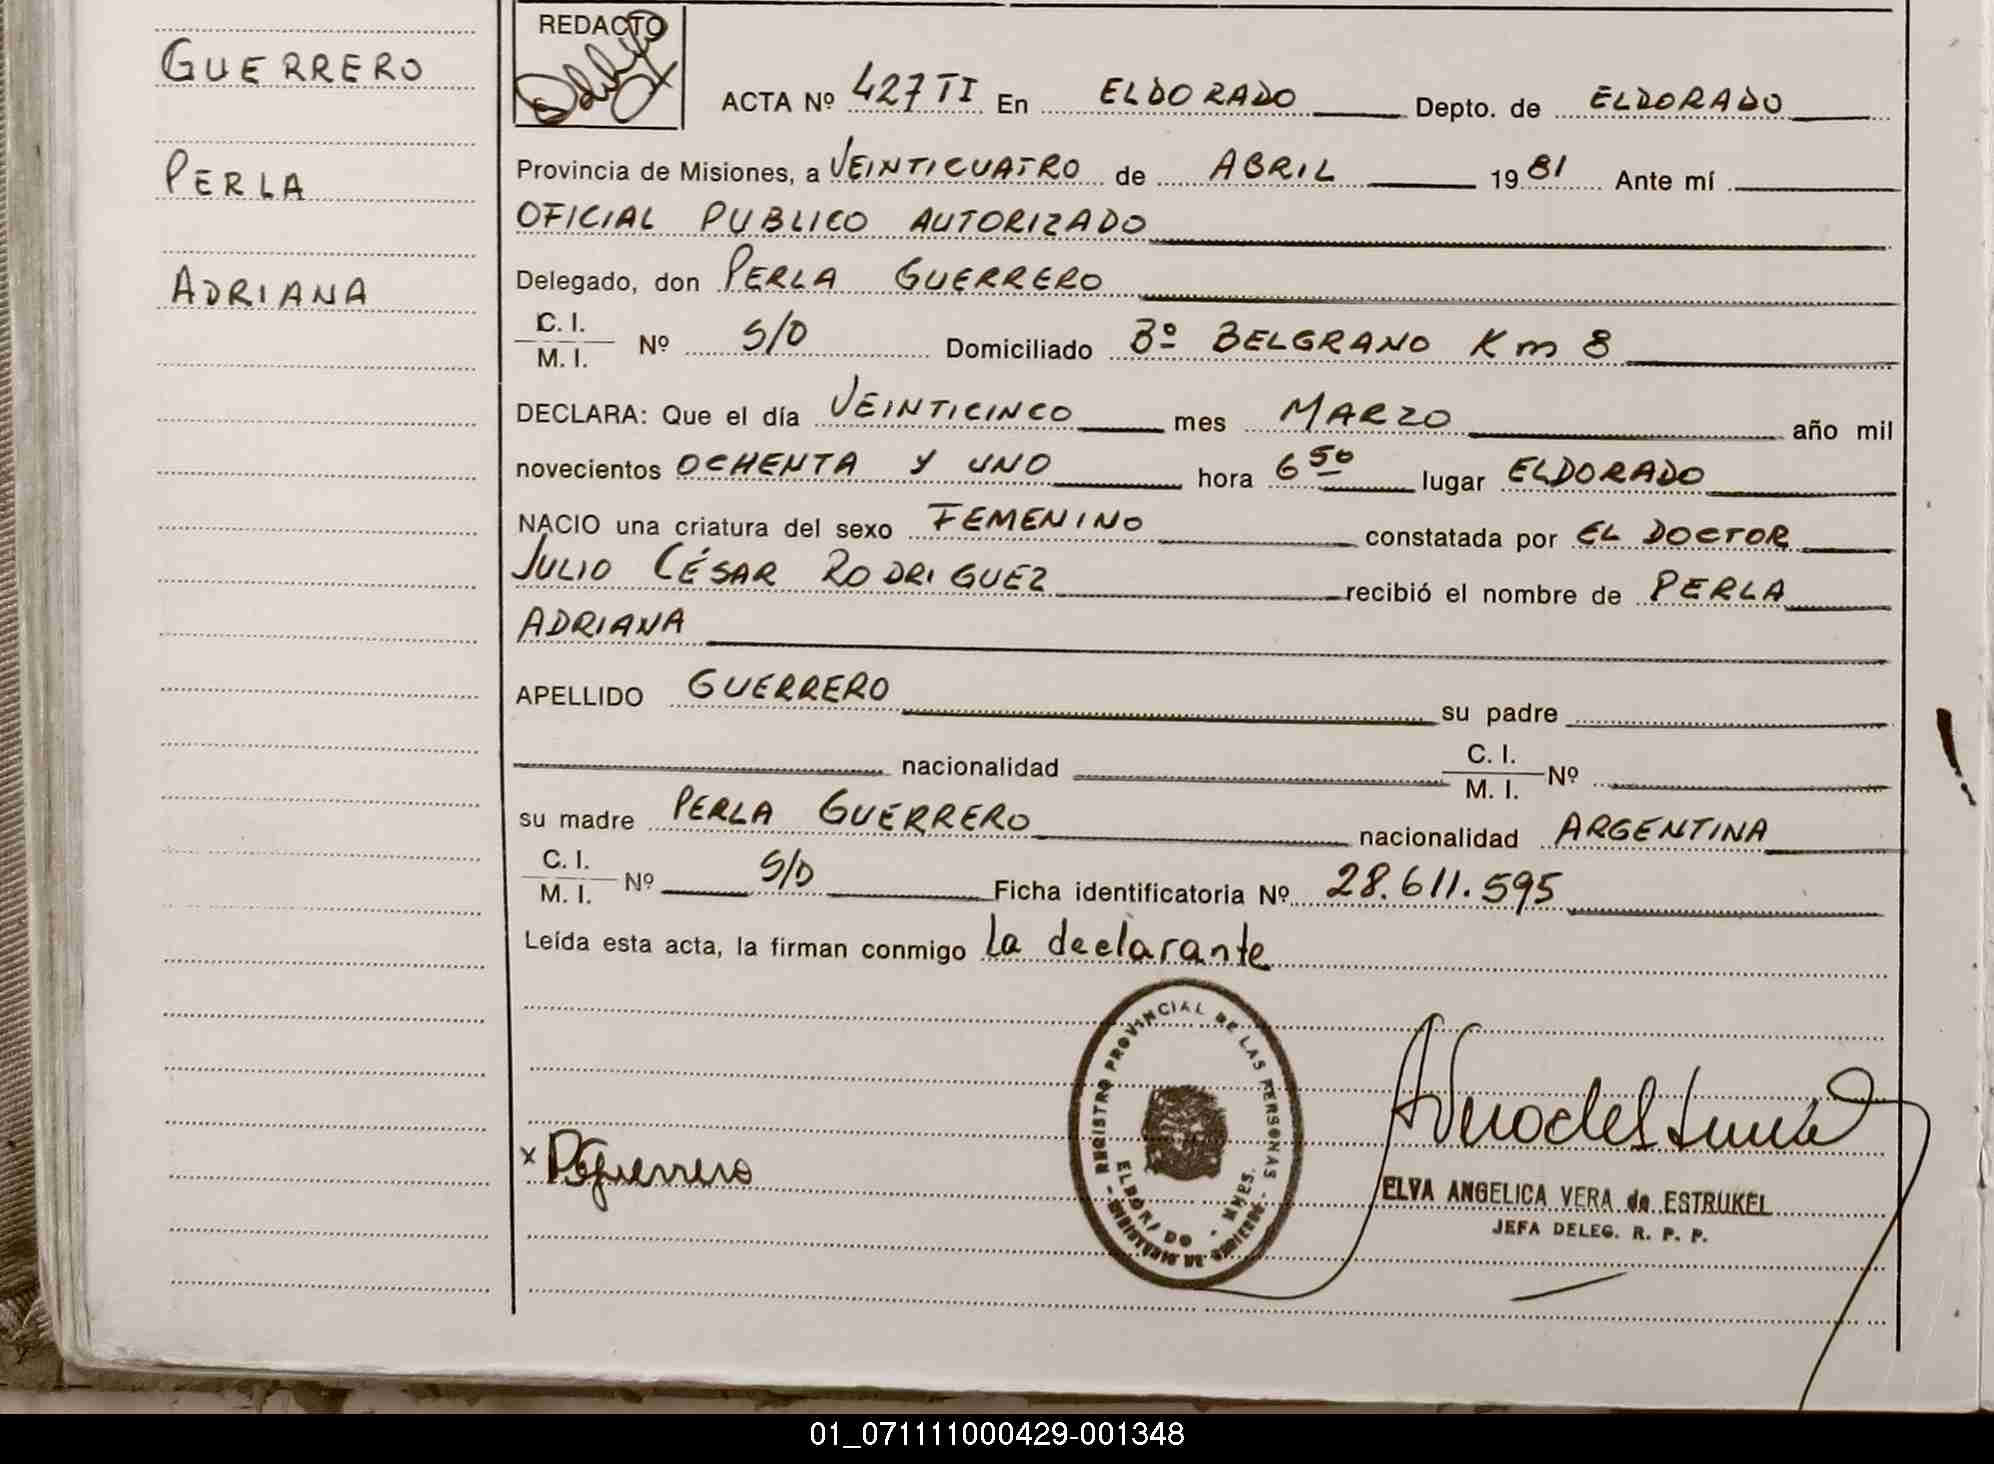 GUERRERO
PERLA
ADRIANA
REDACTO
ACTA Nº 427 TI En ELDORADO Depto. de ELDORADO
Provincia de Misiones, a VEINTICUATRO de ABRIL 19 81 Ante mí
OFICIAL PUBLICO AUTORIZADO
Delegado, don PERLA GUERRERO
C. I.
M. I. Nº S/D Domiciliado Bº BELGRANO Km 8
DECLARA: Que el día VEINTICINCO mes MARZO año mil
novecientos OCHENTA Y UNO hora 6 50 lugar ELDORADO
NACIO una criatura del sexo FEMENINO constatada por EL DOCTOR
JULIO CÉSAR RODRIGUEZ recibió el nombre de PERLA
ADRIANA
APELLIDO GUERRERO su padre
nacionalidad C. I.
M. I. Nº
su madre PERLA GUERRERO nacionalidad ARGENTINA
C. I.
M. I. Nº S/D Ficha identificatoria Nº 28.611.595
Leída esta acta, la firman conmigo la declarante
REGISTRO PROVINCIAL DE LAS PERSONAS
ELDORADO - MNES.
MINISTERIO DE GOBIERNO
x PGuerrero
ELVA ANGELICA VERA de ESTRUKEL
JEFA DELEG. R. P. P.
01_071111000429-001348